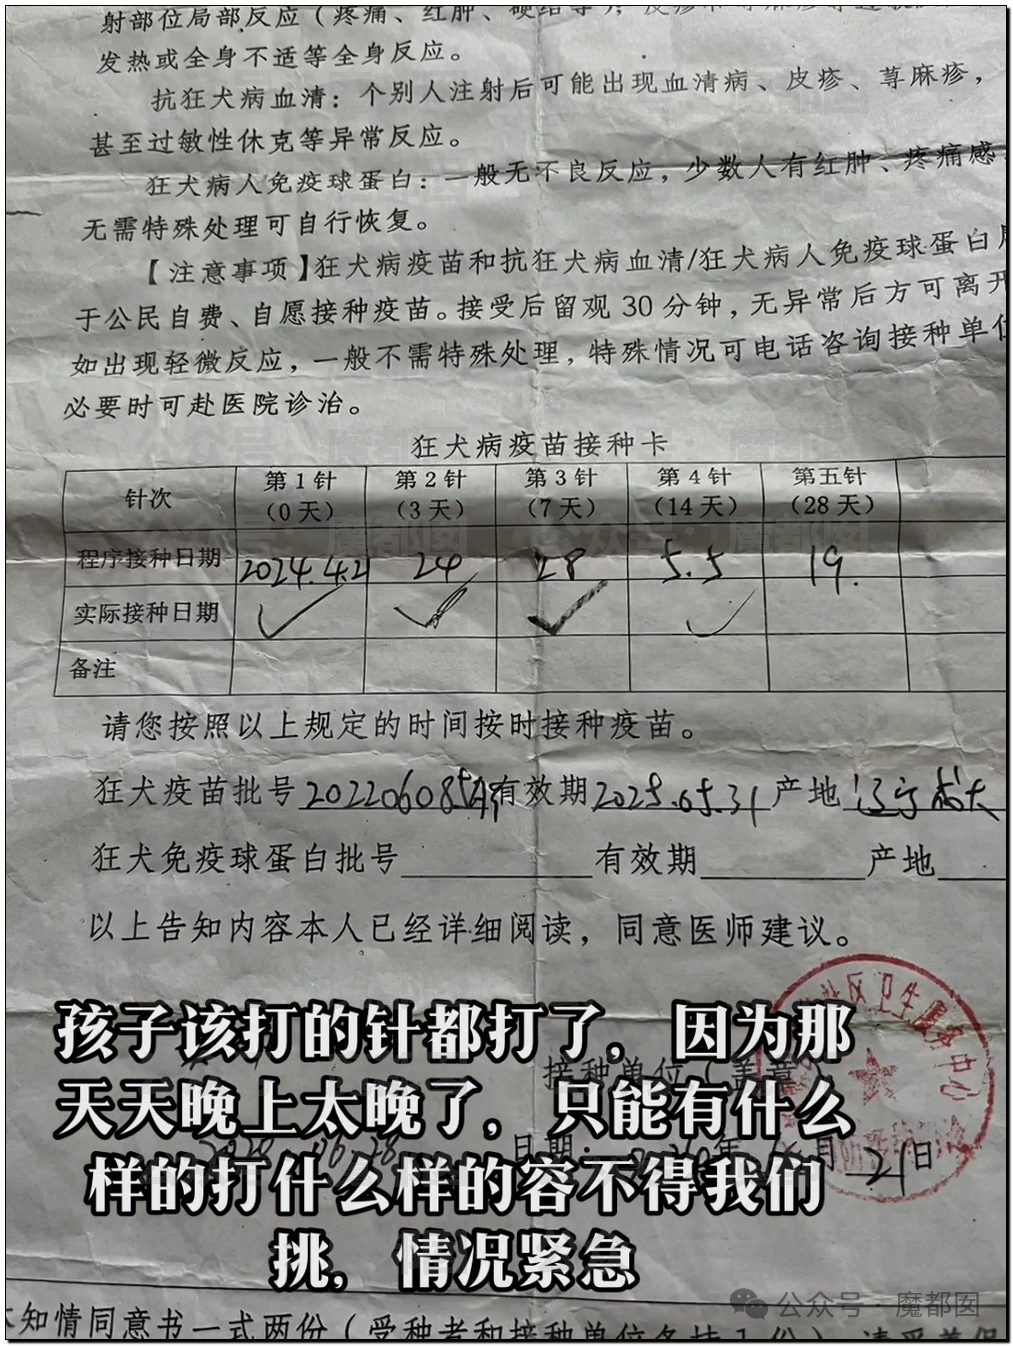 射部位局部反应（疼痛、红肿、硬结等），皮疹
发热或全身不适等全身反应。
抗狂犬病血清：个别人注射后可能出现血清病、皮疹、荨麻疹，
甚至过敏性休克等异常反应。
狂犬病人免疫球蛋白：一般无不良反应，少数人有红肿、疼痛感，
无需特殊处理可自行恢复。
【注意事项】狂犬病疫苗和抗狂犬病血清/狂犬病人免疫球蛋白属
于公民自费、自愿接种疫苗。接受后留观30分钟，无异常后方可离开
如出现轻微反应，一般不需特殊处理，特殊情况可电话咨询接种单位
必要时可赴医院诊治。
狂犬病疫苗接种卡
针次 第1针（0天） 第2针（3天） 第3针（7天） 第4针（14天） 第五针（28天）
程序接种日期 2024.4.21 24 28 5.5 19.
实际接种日期 ✓ ✓ ✓ ✓
备注
请您按照以上规定的时间按时接种疫苗。
狂犬疫苗批号 20220608 有效期 2025.05.31 产地 辽宁成大
狂犬免疫球蛋白批号 有效期 产地
以上告知内容本人已经详细阅读，同意医师建议。
社区卫生服务中心
接种单位（盖章）
日期： 年 月 21日
孩子该打的针都打了，因为那
天天晚上太晚了，只能有什么
样的打什么样的容不得我们
挑，情况紧急
公众号·魔都囡
本知情同意书一式两份（受种者和接种单位各持1份）